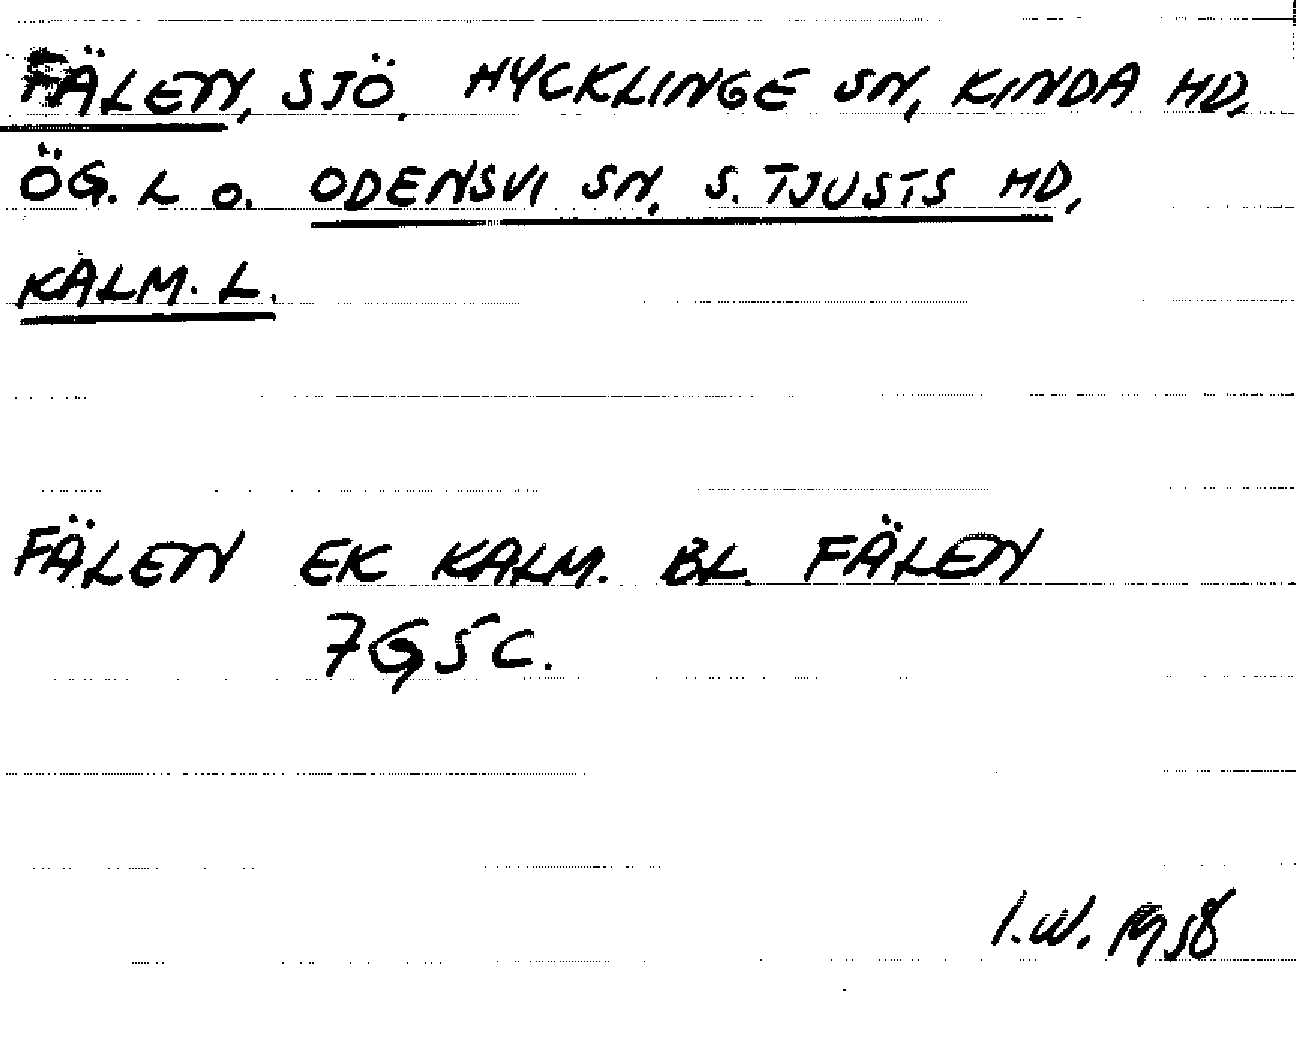 FÄLEN, SJÖ, HYCKLINGE SN, KINDA HD,
ÖG. L O. ODENSVI SN, S. TJUSTS HD,
KALM. L.
FÄLEN EK KALM. BL. FÄLEN
7G5C.
I.W. 1958